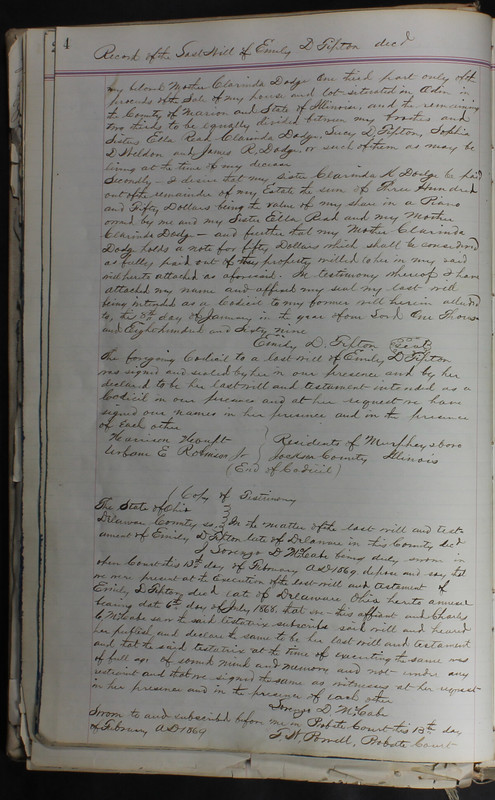 4
Record of the Last Will of Emily D Tipton decd
my beloved Mother Clarinda Dodge One third part only of the
proceeds of the Sale of my house and lot situated in Odin in
the County of Marion and State of Illinois, and the remaining
two thirds to be equally divided between my brother and
Sisters Ella Rash Clarinda Dodge, Lucy D Tipton, Sophia
D Weldon and James R. Dodge or such of them as may be
living at the time of my decease
Secondly - I desire that my sister Clarinda K Dodge be paid
out of the remainder of my Estate the sum of Three Hundred
and Fifty Dollars being the value of my share in a Piano
owned by me and my Sister Ella Rash and my Mother
Clarinda Dodge - and further that my Mother Clarinda
Dodge holds a note for fifty Dollars which shall be considered
as fully paid out of the property willed to her in my said
will hereto attached as aforesaid. In testimony whereof I have
attached my name and affixed my seal my last will
being intended as a Codicil to my former will herein alluded
to, this 8th day of January in the year of our Lord One Thous-
and Eight hundred and Sixty nine
Emily D. Tipton (Seal)
The foregoing Codicil to a last will of Emily D Tipton
was signed and sealed by her in our presence and by her
declared to be her last will and testament intended as a
Codicil in our presence and at her request we have
signed our names in her presence and in the presence
of each other
Harrison Houpt } Residents of Murpheysboro
Urbane E Robinson Jr } Jackson County Illinois
(End of Codicil)
Copy of Testimony
The State of Ohio
Delaware County ss. In the matter of the last will and test-
ament of Emily D Tipton late of Delaware in this County decd
I Lorenzo D McCabe being duly sworn in
open Court this 13th day of February AD 1869, depose and say, that
we were present at the Execution of the last will and testament of
Emily D Tipton decd late of Delaware Ohio hereto annexed
bearing date 6th day of July 1868. that we - this affiant and Charles
C, McCabe saw the said testatrix subscribe said will and heard
her publish and declare the same to be her last will and testament
and that the said testatrix at the time of executing the same was
of full age of sound mind and memory and not under any
restraint and that we signed the same as witnesses at her request
in her presence and in the presence of each other
Lorenzo D McCabe
Sworn to and subscribed before me in Probate Court this 13th day
of February AD 1869
T. W. Powell, Probate Court